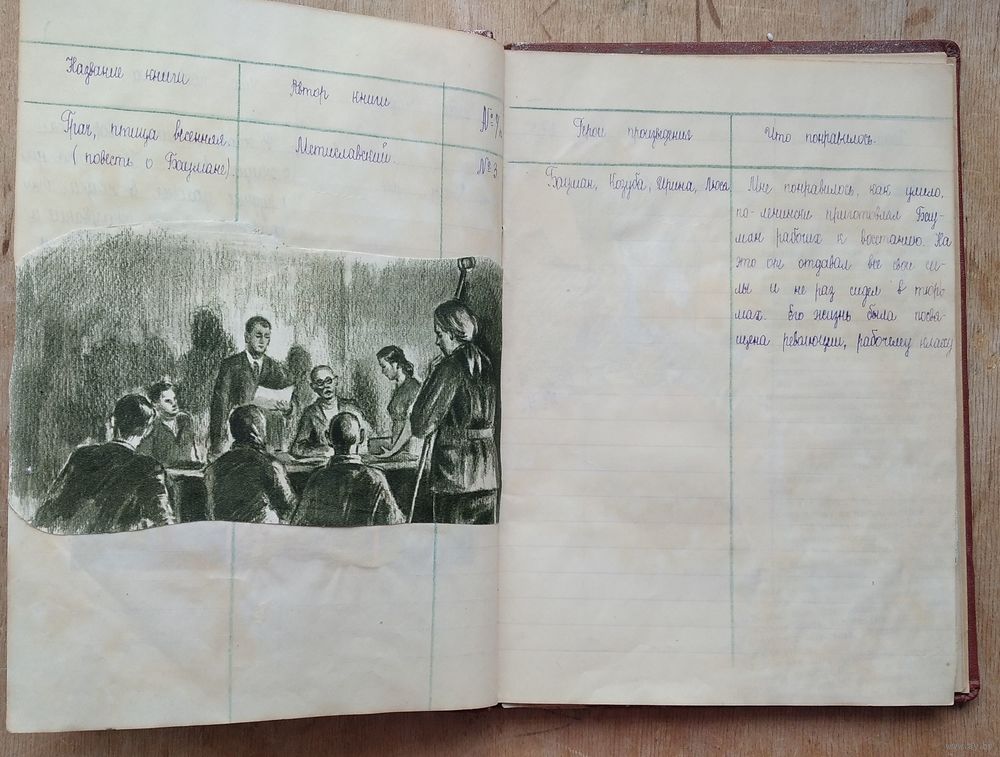 Название книги
Автор книги
Грач, птица весенняя.
(повесть о Баумане).
Мстиславский.
№ 3
Герои произведения
Что понравилось.
Бауман, Козуба, Ирина, Люся
Мне понравилось, как умело,
по-ленински приготовлял Бау-
ман рабочих к восстанию. На
это он отдавал все свои си-
лы и не раз сидел в тюрь-
мах. Его жизнь была посвя-
щена революции, рабочему классу